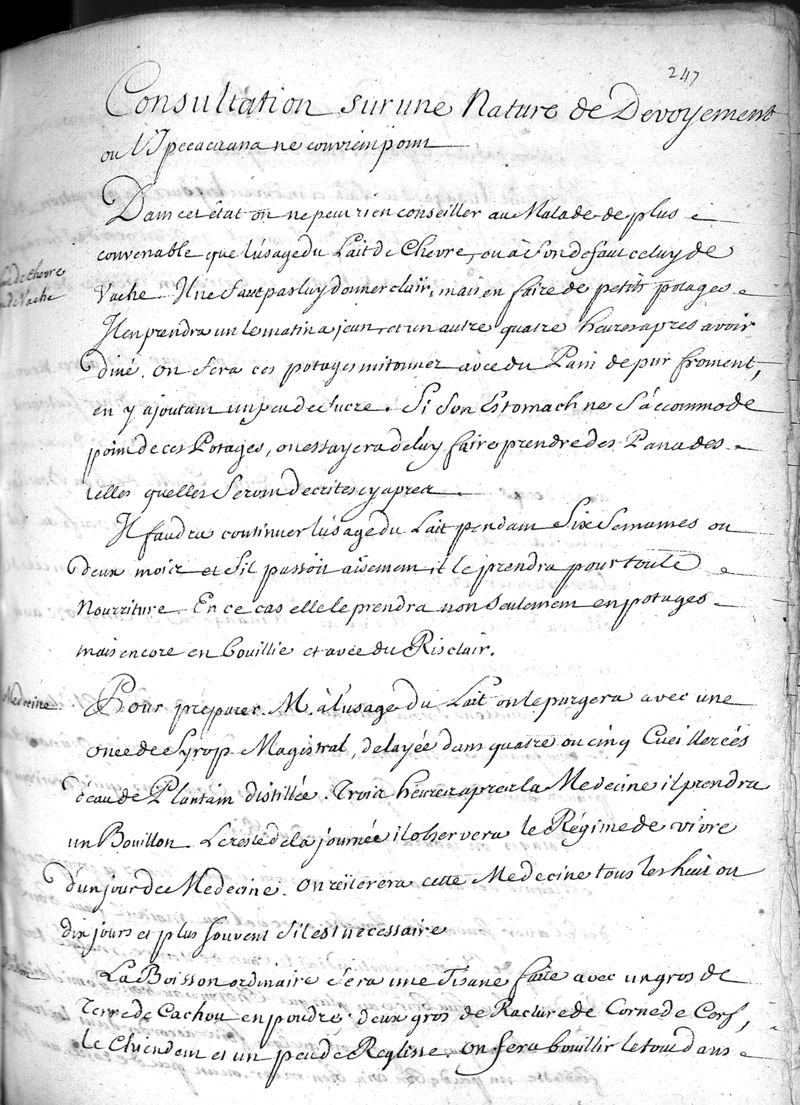 247
Consultation sur une Nature de Devoyement
ou l'Ipecacuana ne convient point
Dans cet état on ne peut rien conseiller au Malade de plus
convenable que l'usage du Lait de Chevre, ou à son defaut celuy de
Vache. Il ne faut pas luy donner clair, mais en faire de petits potages
Il en prendra un le matin a jeun, et un autre quatre heures apres avoir
diné. on fera ces potages mitonner avec du Pain de pur froment,
en y ajoutant un peu de sucre. Si son Estomach ne s'accommode
point de ces Potages, on essayera de luy faire prendre des Panades
telles quelles seront decrites cy apres
Il faudra continuer l'usage du Lait pendant Six Semaines ou
deux mois et s'il passoit aisement il le prendra pour toute
Nourriture. En ce cas elle le prendra non seulement en potages
mais encore en bouillie et avec du Ris clair.
Medecine
Pour preparer M. à l'usage du Lait on le purgera avec une
once de Syrop Magistral, delayée dans quatre ou cinq Cueillerées
d'eau de Plantain distillée. Trois heures apres la Medecine il prendra
un Bouillon. Le reste de la journée il observera le Régime de vivre
d'un jour de Medecine. On reïterera cette Medecine tous les huit ou
dix jours et plus souvent s'il est necessaire
La Boisson ordinaire sera une Tisane faite avec un gros de
Terre de Cachou en poudre, deux gros de Raclure de Corne de Cerf,
le Chiendent et un peu de Reglisse. On fera bouillir le tout dans